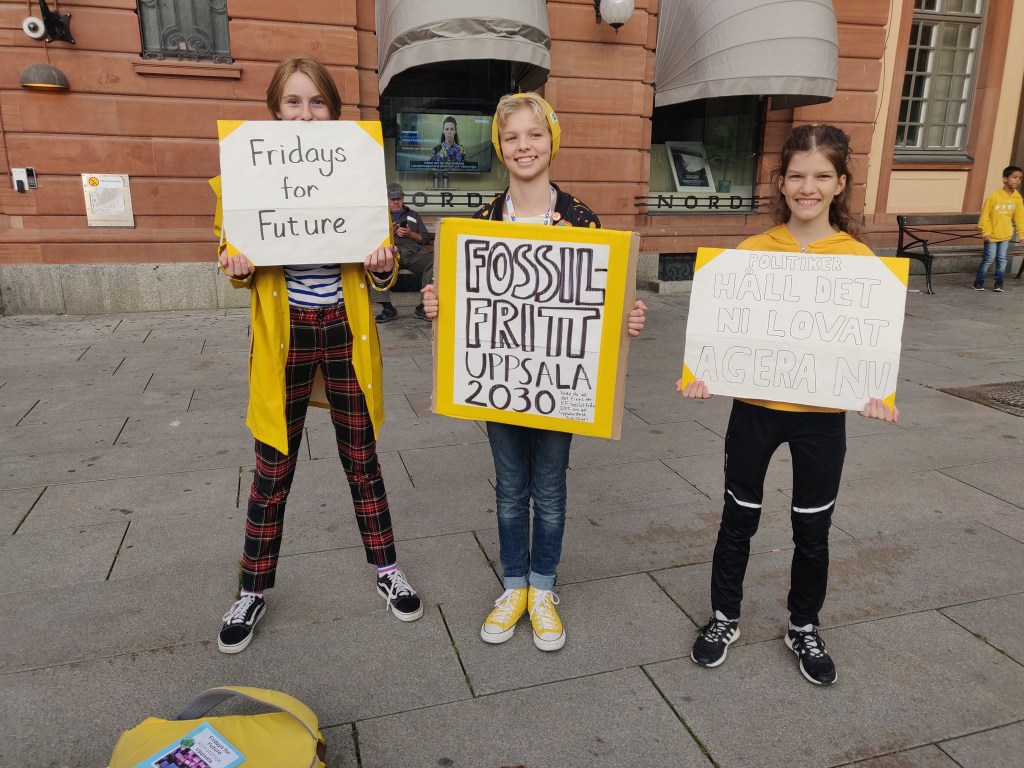 Fridays
for
Future
FOSSIL-
FRITT
UPPSALA
2030
POLITIKER
HÅLL DET
NI LOVAT
AGERA NU
NORDE
NORDE
Fridays for
Future
Uppsala